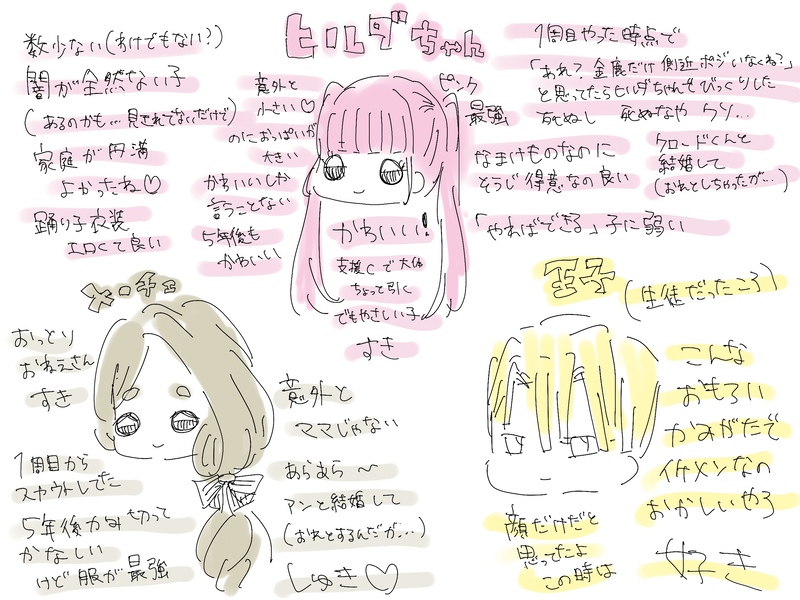 ヒルダちゃん
数少ない(わけでもない?)
闇が全然ない子
(あるのかも…見されてないだけで)
家庭が円満
よかったね♡
踊り子衣装
エロくて良い
意外と
小さい♡
のにおっぱいが
大きい
かわいいしか
言うことない
5年後も
かわいい
ピンク
最強
かわいい!
支援Cで大体
ちょっと引く
でもやさしい子
すき
1周目やった時点で
「あれ?金鹿だけ側近ポジいなくね?」
と思ってたらヒルダちゃんでびっくりした
死ぬなや ウソ…
なまけものなのに
そうじ得意なの良い
クロードくんと
結婚して
(おれとしちゃったが…)
「やればできる」子に弱い
メーチェ
おっとり
おねえさん
すき
1周目から
スカウトしてた
5年後かみ切って
かなしい
けど服が最強
意外と
ママじゃない
あらあら〜
アンと結婚して
(おれとするんだが…)
しゅき♡
王子
(生徒だったころ)
こんな
おもろい
かみがたで
イケメンなの
おかしいやろ
好き
顔だけだと
思ってたよ
この時は